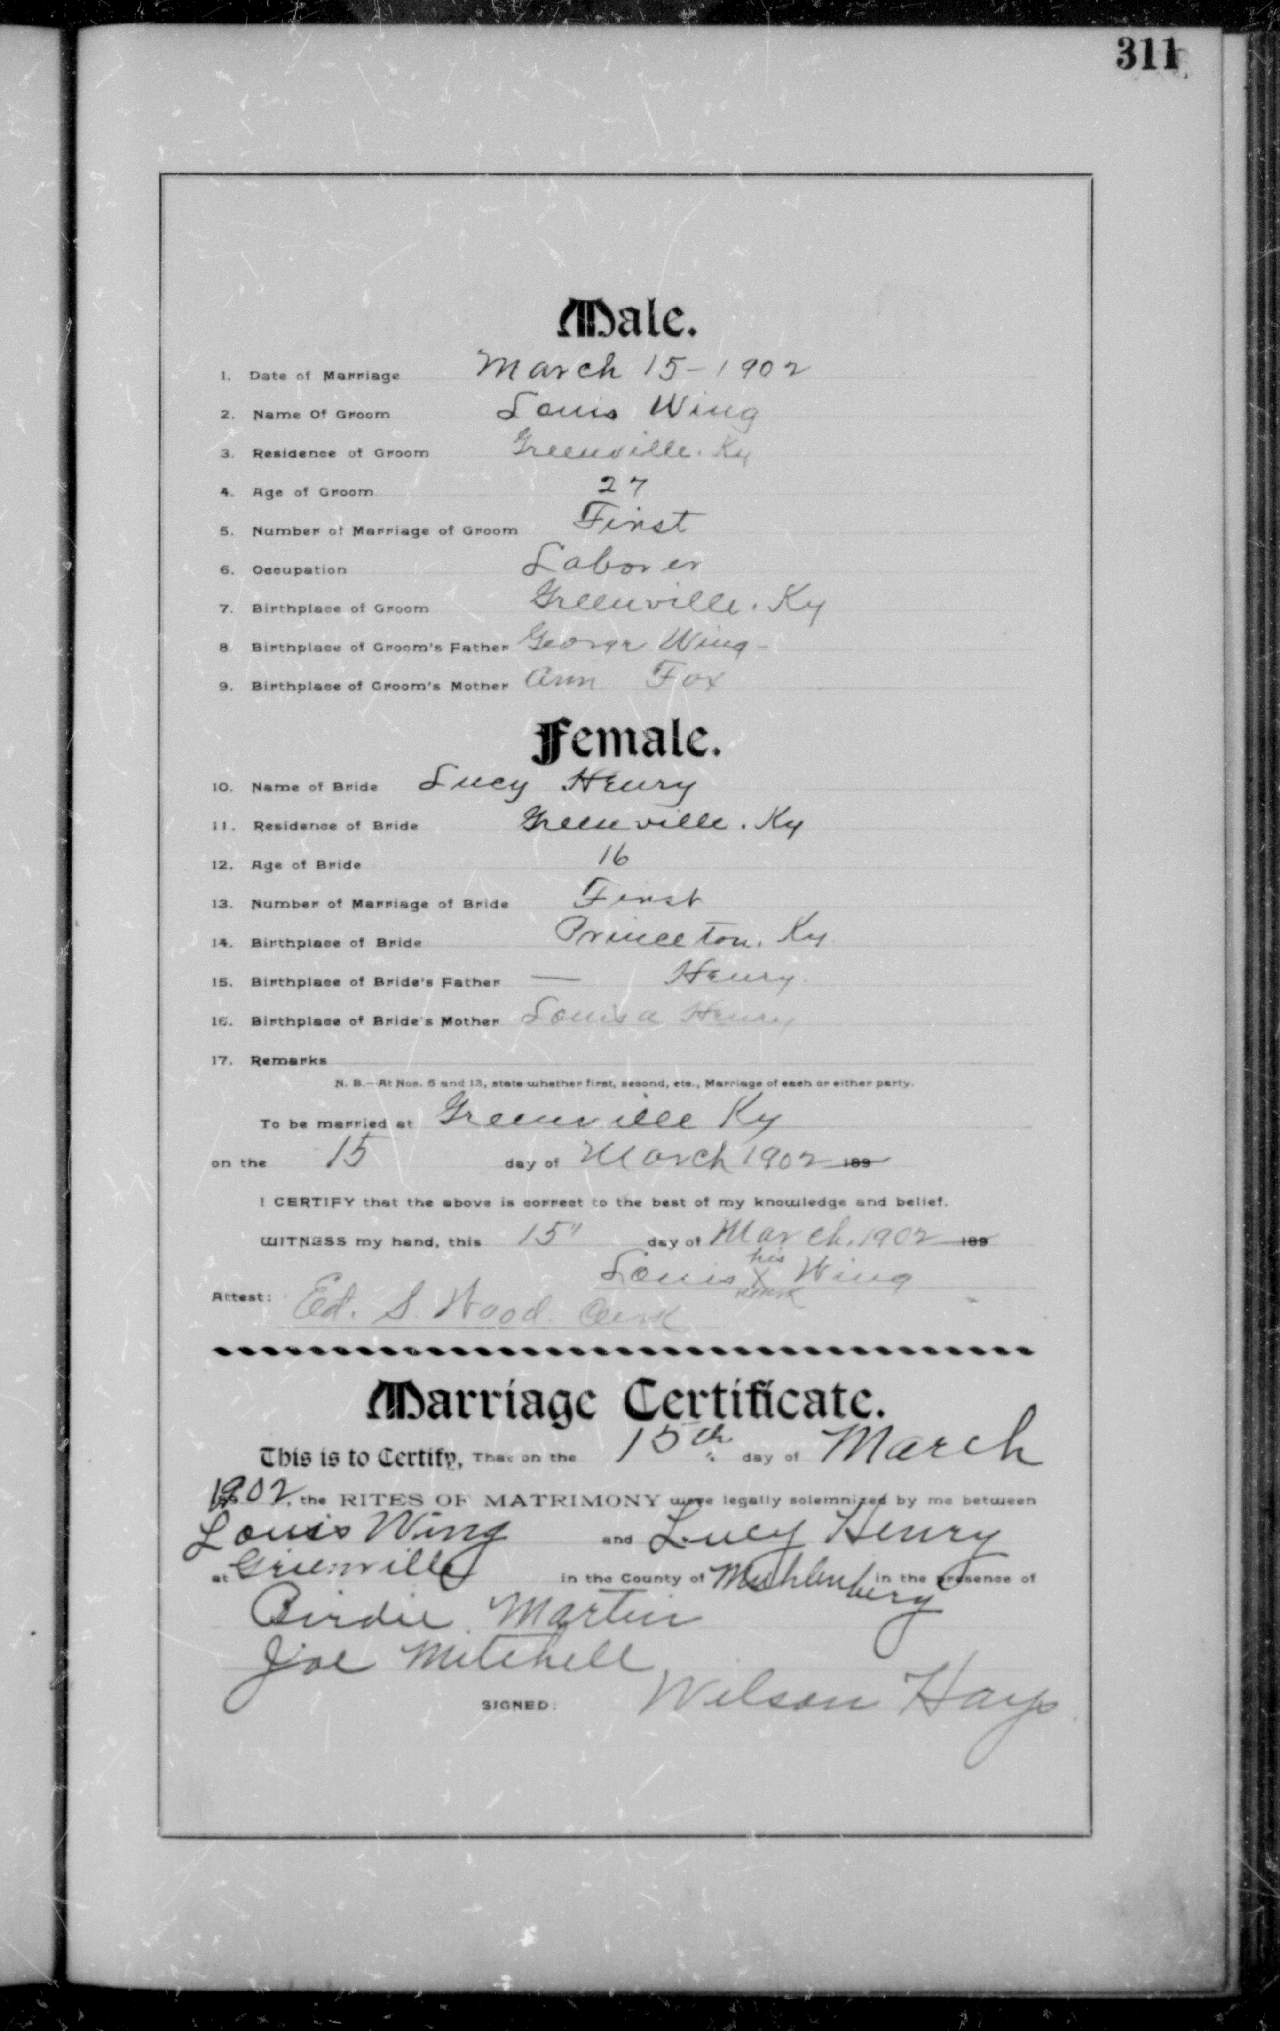 311
Male.
1. Date of Marriage March 15-1902
2. Name Of Groom Louis Wing
3. Residence of Groom Greenville. Ky
4. Age of Groom 27
5. Number of Marriage of Groom First
6. Occupation Laborer
7. Birthplace of Groom Greenville. Ky
8 Birthplace of Groom's Father George Wing-
9. Birthplace of Groom's Mother Ann Fox
Female.
10. Name of Bride Lucy Henry
11. Residence of Bride Greenville. Ky
12. Age of Bride 16
13. Number of Marriage of Bride First
14. Birthplace of Bride Princeton. Ky.
15. Birthplace of Bride's Father — Henry.
16. Birthplace of Bride's Mother Louisa Henry
17. Remarks
N. B.—At Nos. 5 and 13, state whether first, second, etc., Marriage of each or either party.
To be married at Greenville Ky
on the 15 day of March 1902 189
I CERTIFY that the above is correct to the best of my knowledge and belief.
WITNESS my hand, this 15" day of March. 1902 189
his
Louis X Wing
mark
Attest: Ed. S. Wood. Clerk
Marriage Certificate.
This is to Certify, That on the 15th day of March
1902, the RITES OF MATRIMONY were legally solemnized by me between
Louis Wing and Lucy Henry
at Greenville in the County of Muhlenberg in the presence of
Birdie Martin
Joe Mitchell
SIGNED: Wilson Hays